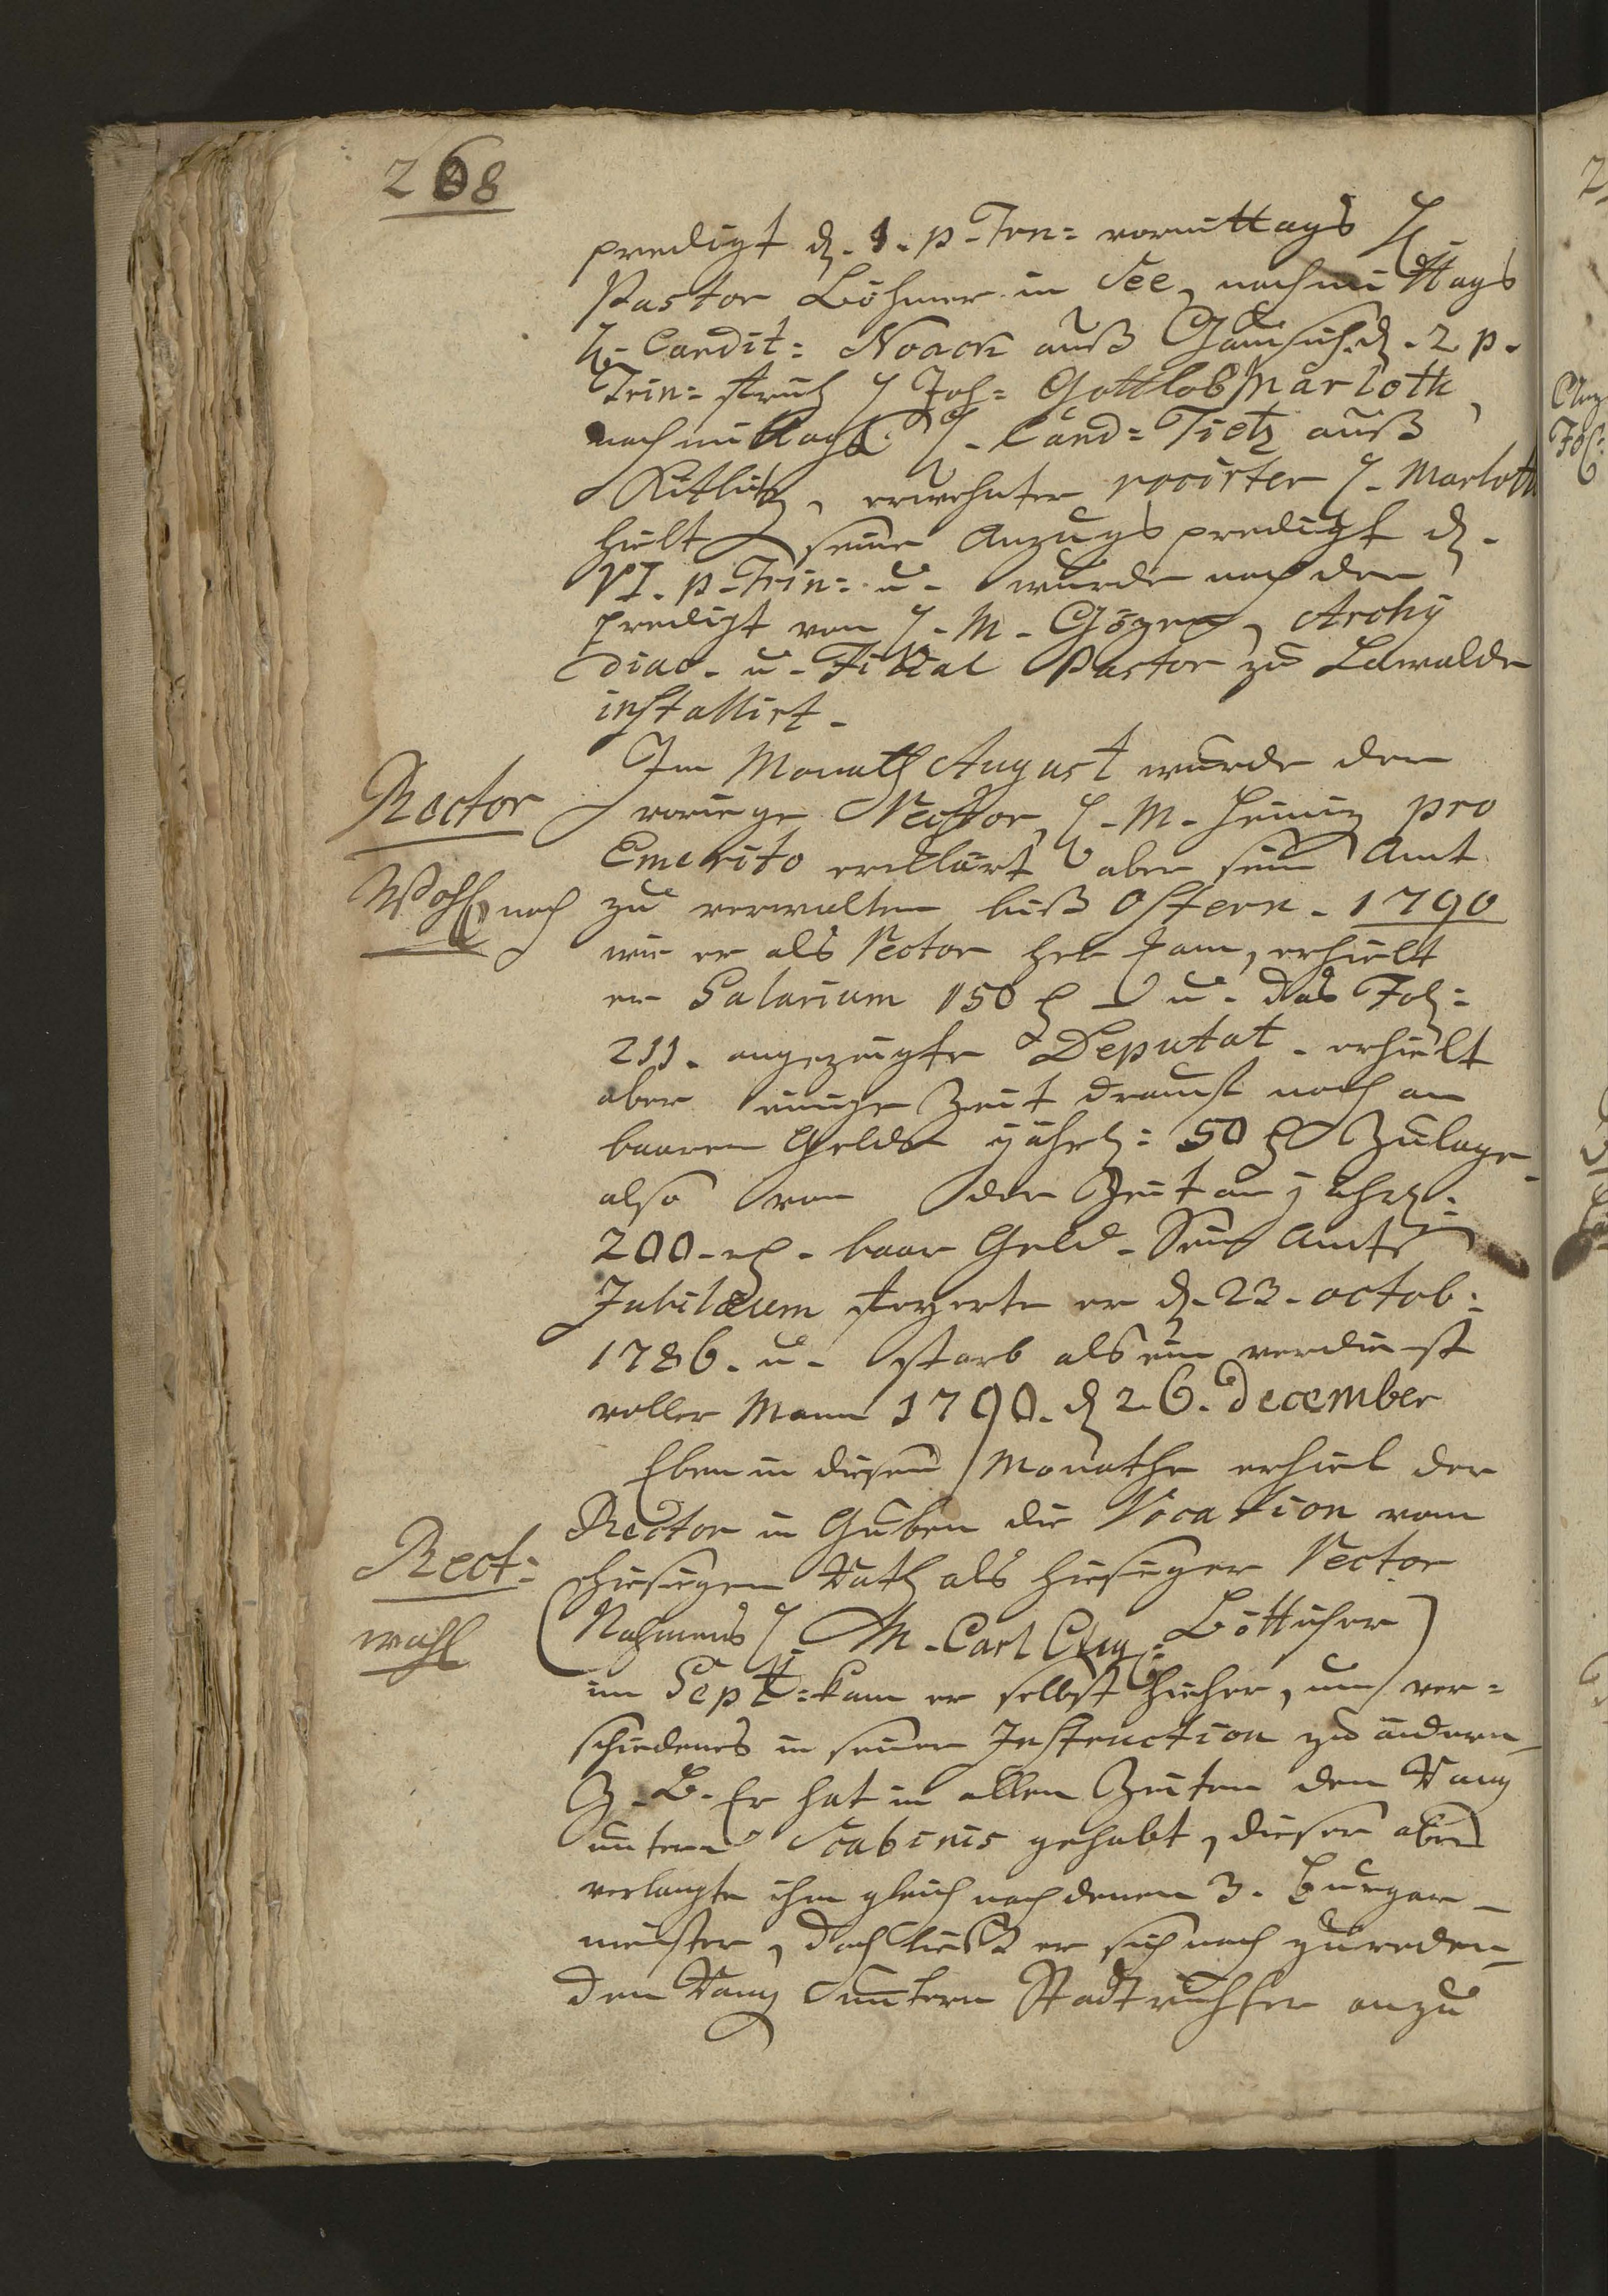 268
predigt d. 1. p. Trn= vormittags H.
Pastor Böhmer in See, nachmittags
H. Candit: Noack auß d. 2 p.
Trin= früh H Joh= Gottlob Marloth,
nachmittags H. Cand= Tietz auß
Kittlitz, erwehnter vocirter H. Marloth
hielt seine Anzugs predigt d.
VI. p. Trin= u. wurde nach der
predigt von H. M. Gözen, Archy
diac. u. Filial Pastor zu Lawalde
installirt.
Im Monath August wurde der
Rector
vorige Rector, H. M. Heiniz pro
Emerito erklärt aber sein Amt
Wahl nach
zu verwalten biß Ostern. 1790
wie er als Rector her kam, erhielt
er Salarium 150 u. das Fol:
211. angezeigte Deputat. erhielt
aber einige Zeit drauf noch an
baaren Gelde jährl: 50 Zulage
also von der Zeit an jährl:
200 baar Geld. Sein Amts
Jubilæum feyerte er d. 23. octob:
1786. u. starb als ein verdienst
voller Mann 1790. d 26. December
Eben in diesen Monathe erhiel der
Rector in Guben die Vocation vom
Rect:
hiesigen Rath als hiesiger Rector
wahl
(Nahmens H. M. Carl Aug: Böttiher)
im Sept: kam er selbst hieher, um ver=
schiedenes in seiner Instruction zu ändern
Z. B. Er hat in allen Zeiten den Rang
untern Scabinis gehabt, dieser aber
verlangte ihn gleich nach denen 3. Burger
meister, doch ließ er sich nach zureden
den Rang untern Stadtrichter anzu